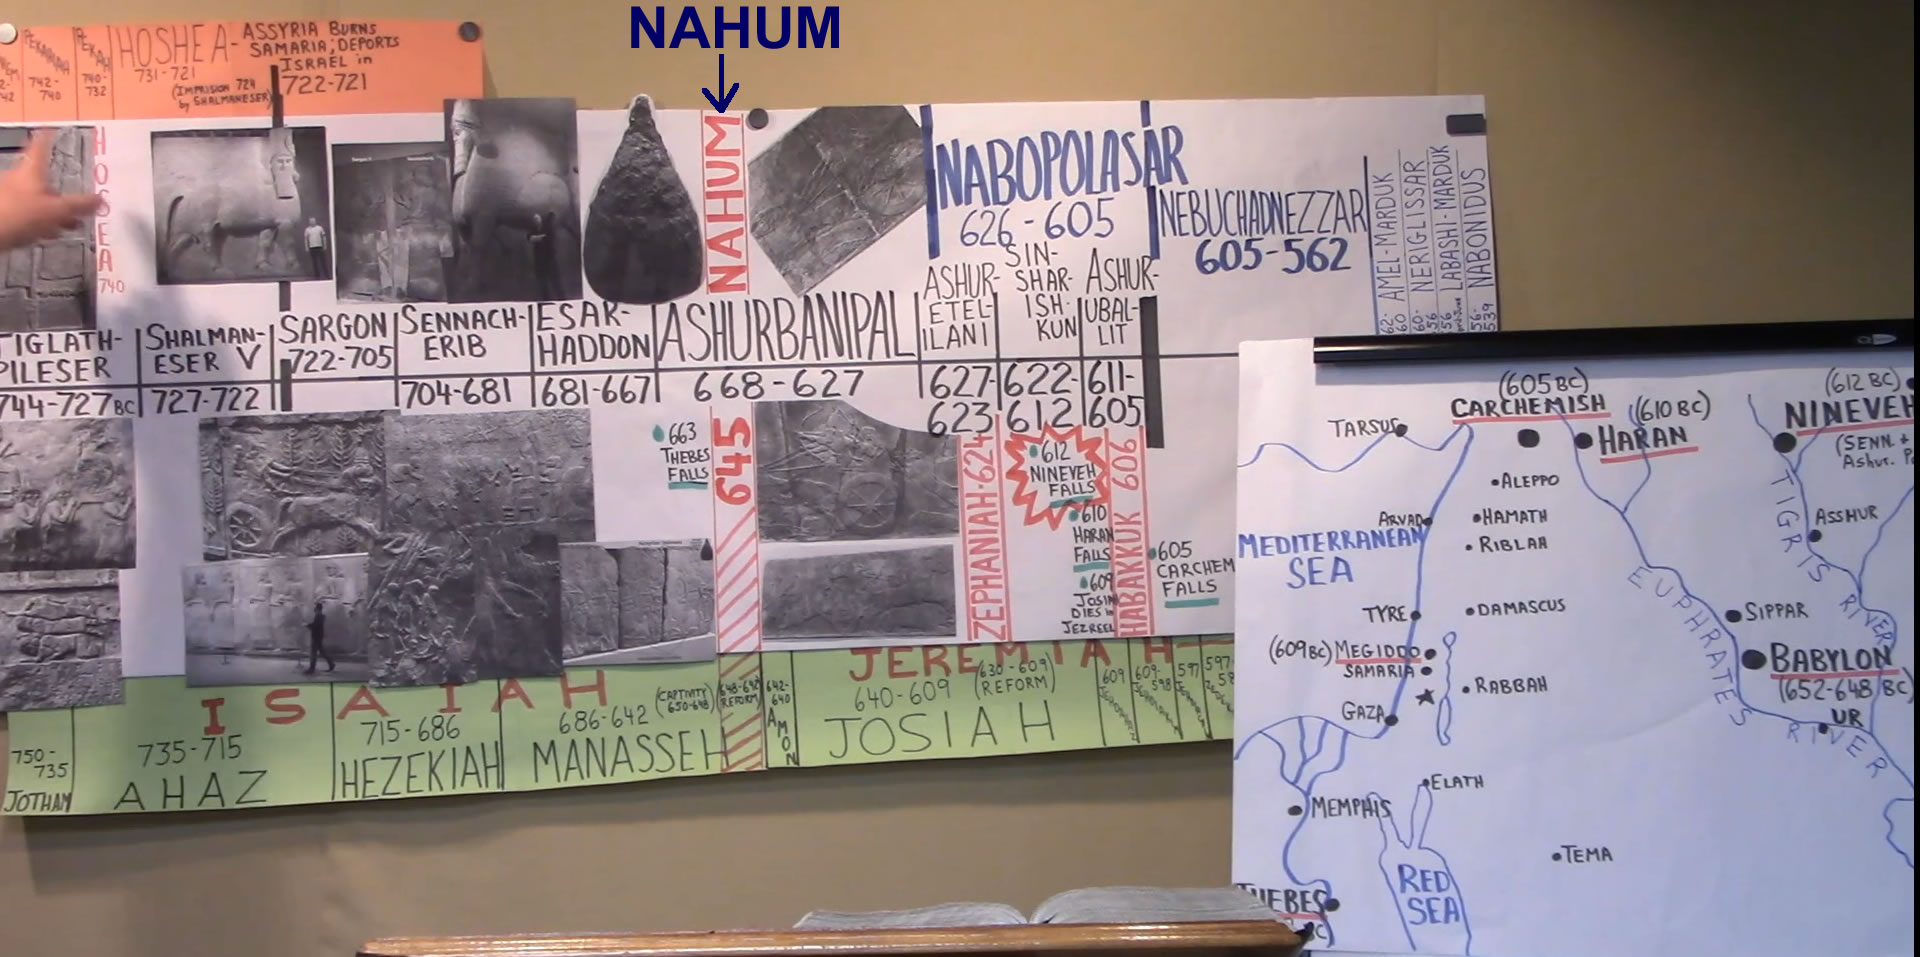 NAHUM
PEKAHIAH
742-
740
PEKAH
740-
732
HOSHEA-
731-721
ASSYRIA BURNS
SAMARIA; DEPORTS
ISRAEL in
722-721
(IMPRISION 724
by SHALMANESER)
HOSEA
740
NAHUM
NABOPOLASAR
626-605
NEBUCHADNEZZAR
605-562
AMEL-MARDUK
NERIGLISSAR
LABASHI-MARDUK
NABONIDUS
TIGLATH-
PILESER
744-727 BC
SHALMAN-
ESER V
727-722
SARGON
722-705
SENNACH-
ERIB
704-681
ESAR-
HADDON
681-667
ASHURBANIPAL
668-627
ASHUR-
ETEL-
ILANI
627-
623
SIN-
SHAR-
ISH-
KUN
622-
612
ASHUR-
UBAL-
LIT
611-
605
663
THEBES
FALLS
645
ZEPHANIAH-624
612
NINEVEH
FALLS
610
HARAN
FALLS
609
JOSIAH
DIES in
JEZREEL
HABAKUK 606
605
CARCHEM
FALLS
ISAIAH
JEREMIAH
750-
735
JOTHAM
735-715
AHAZ
715-686
HEZEKIAH
686-642
(CAPTIVITY
650-648)
MANASSEH
648-642
REFORM)
642-
640
AMON
640-609
(630-609)
(REFORM)
JOSIAH
609
609-
598
597
597-
(605 BC)
CARCHEMISH
(610 BC)
HARAN
(612 BC)
NINEVEH
(SENN. +
Ashur.
TARSUS
ALEPPO
ARVAD
HAMATH
RIBLAH
MEDITERRANEAN
SEA
TIGRIS RIVER
ASSHUR
EUPHRATES RIVER
TYRE
DAMASCUS
SIPPAR
(609 BC) MEGIDDO
SAMARIA
BABYLON
(652-648 BC)
RABBAH
GAZA
UR
ELATH
MEMPHIS
TEMA
RED
SEA
THEBES